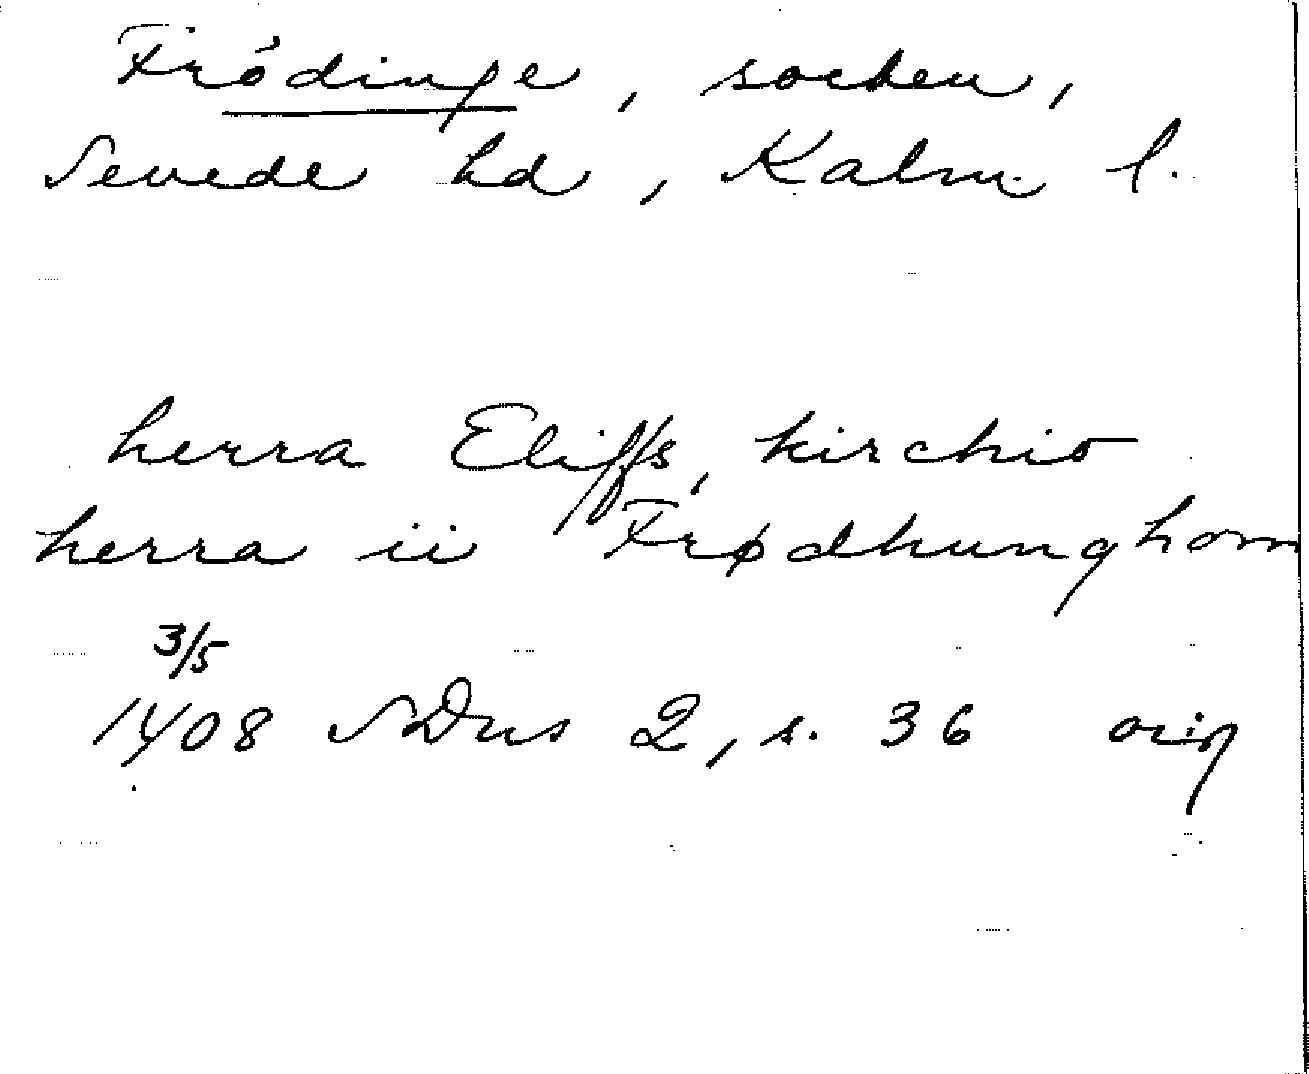 Frödinge, socken,
Sevede hd, Kalm. l.
herra Eliffs, kirchio
herra ii Frødhunghom
3/5
1408 SDns 2, s. 36 orig